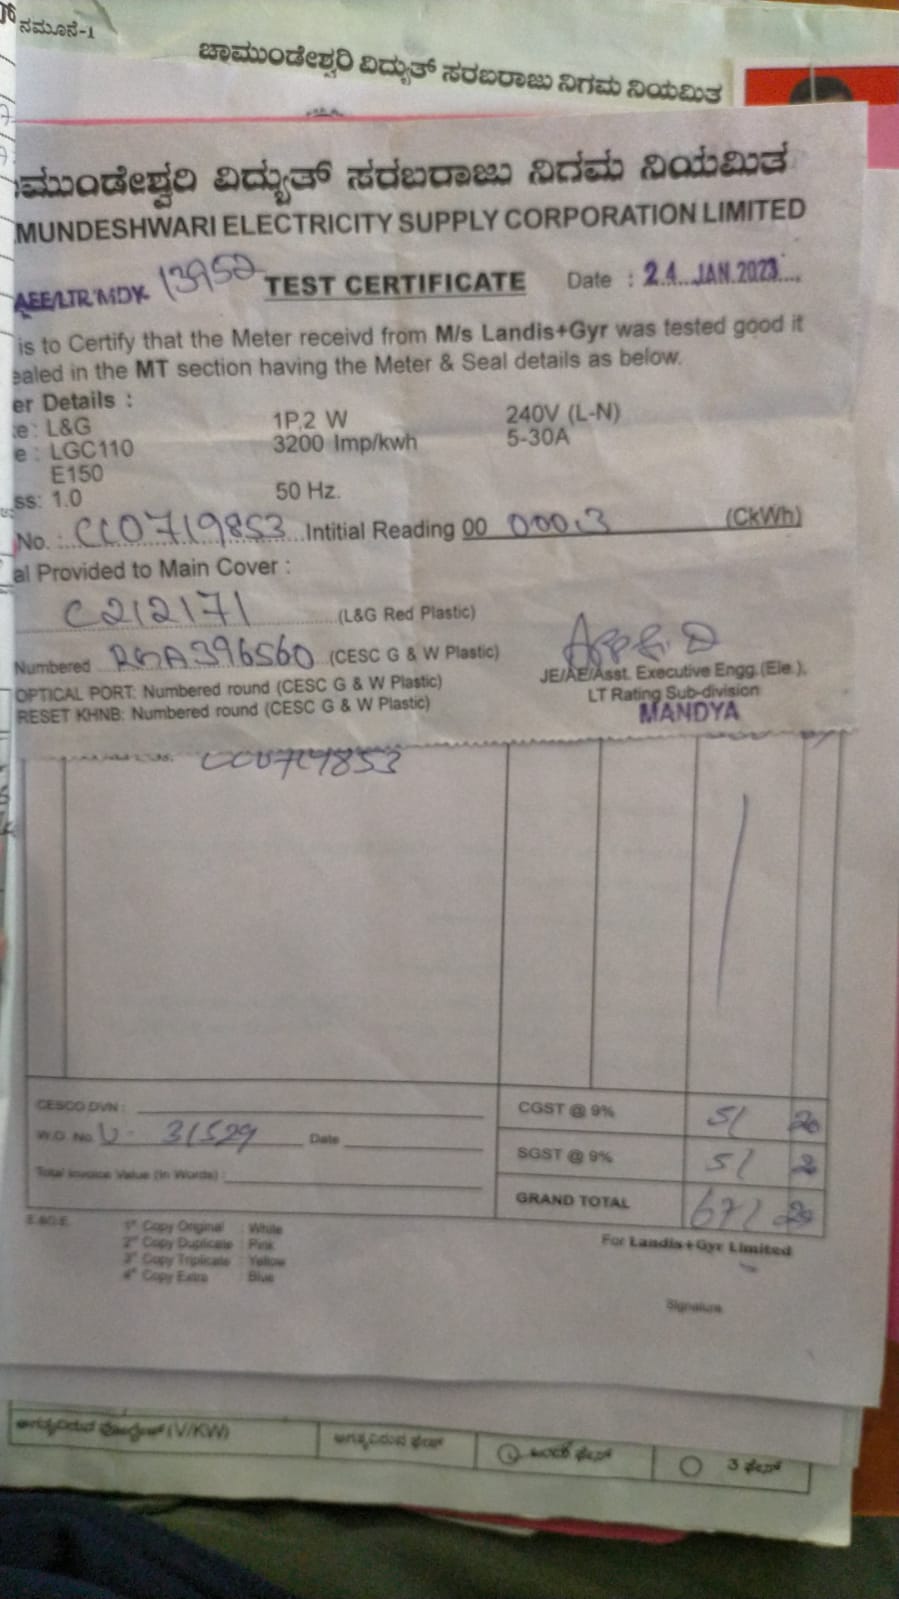 ನಮೂನೆ-1
ಚಾಮುಂಡೇಶ್ವರಿ ವಿದ್ಯುತ್ ಸರಬರಾಜು ನಿಗಮ ನಿಯಮಿತ
ಮುಂಡೇಶ್ವರಿ ವಿದ್ಯುತ್ ಸರಬರಾಜು ನಿಗಮ ನಿಯಮಿತ
MUNDESHWARI ELECTRICITY SUPPLY CORPORATION LIMITED
AEE/LTR/MDY- 13952 TEST CERTIFICATE Date : 24 JAN 2023
is to Certify that the Meter receivd from M/s Landis+Gyr was tested good it
ealed in the MT section having the Meter & Seal details as below.
er Details :
e: L&G 1P,2 W 240V (L-N)
e : LGC110 3200 Imp/kwh 5-30A
E150
ss: 1.0 50 Hz.
No. : CC0719853 Intitial Reading 00 000.3 (CkWh)
al Provided to Main Cover :
C212171 (L&G Red Plastic)
Numbered 396560 (CESC G & W Plastic)
JE/AE/Asst. Executive Engg.(Ele.),
OPTICAL PORT: Numbered round (CESC G & W Plastic)
LT Rating Sub-division
RESET KHNB: Numbered round (CESC G & W Plastic)
MANDYA
CESCO DVN : CGST @ 9% 51 20
W.O. No. U- 31529 Date
SGST @ 9% 51 2
Total Invoice Value (In Words) :
GRAND TOTAL 671
E.&O.E.
1st Copy Original : White
2nd Copy Duplicate : Pink
3rd Copy Triplicate : Yellow
4th Copy Extra : Blue
For Landis+Gyr Limited
Signature
(V/KW)
3 ಫೇಸ್